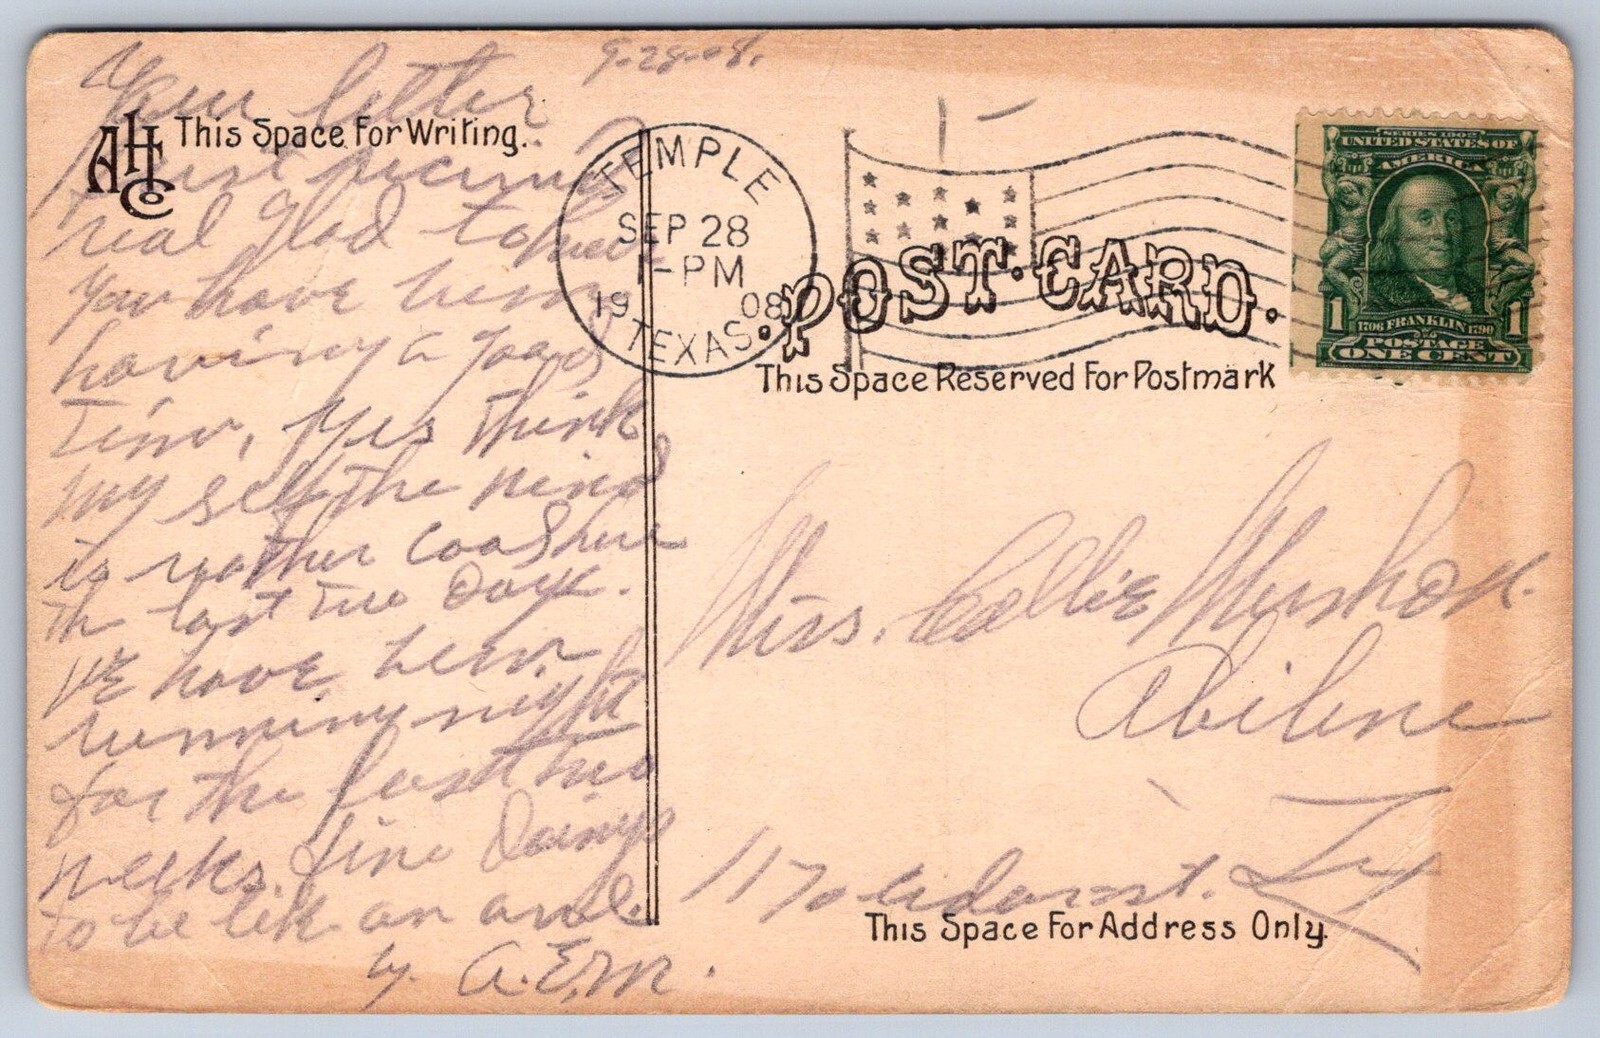 9-28-08.
Your letter
AHCo This Space For Writing.
just
real glad to
You have been
having a good
Time, yes think
my self the
is rather cool here
the last two Days.
WE have been
running night
for the last two
weeks. fine
to be lik an owl.
by. A.E.M.
TEMPLE
SEP 28
1-PM
1908
TEXAS
POST-CARD.
This Space Reserved For Postmark
SERIES 1902
UNITED STATES OF
AMERICA
1 1706 FRANKLIN 1790 1
POSTAGE
ONE CENT
Miss. Callie
Abilene
Tex
st.
This Space For Address Only.